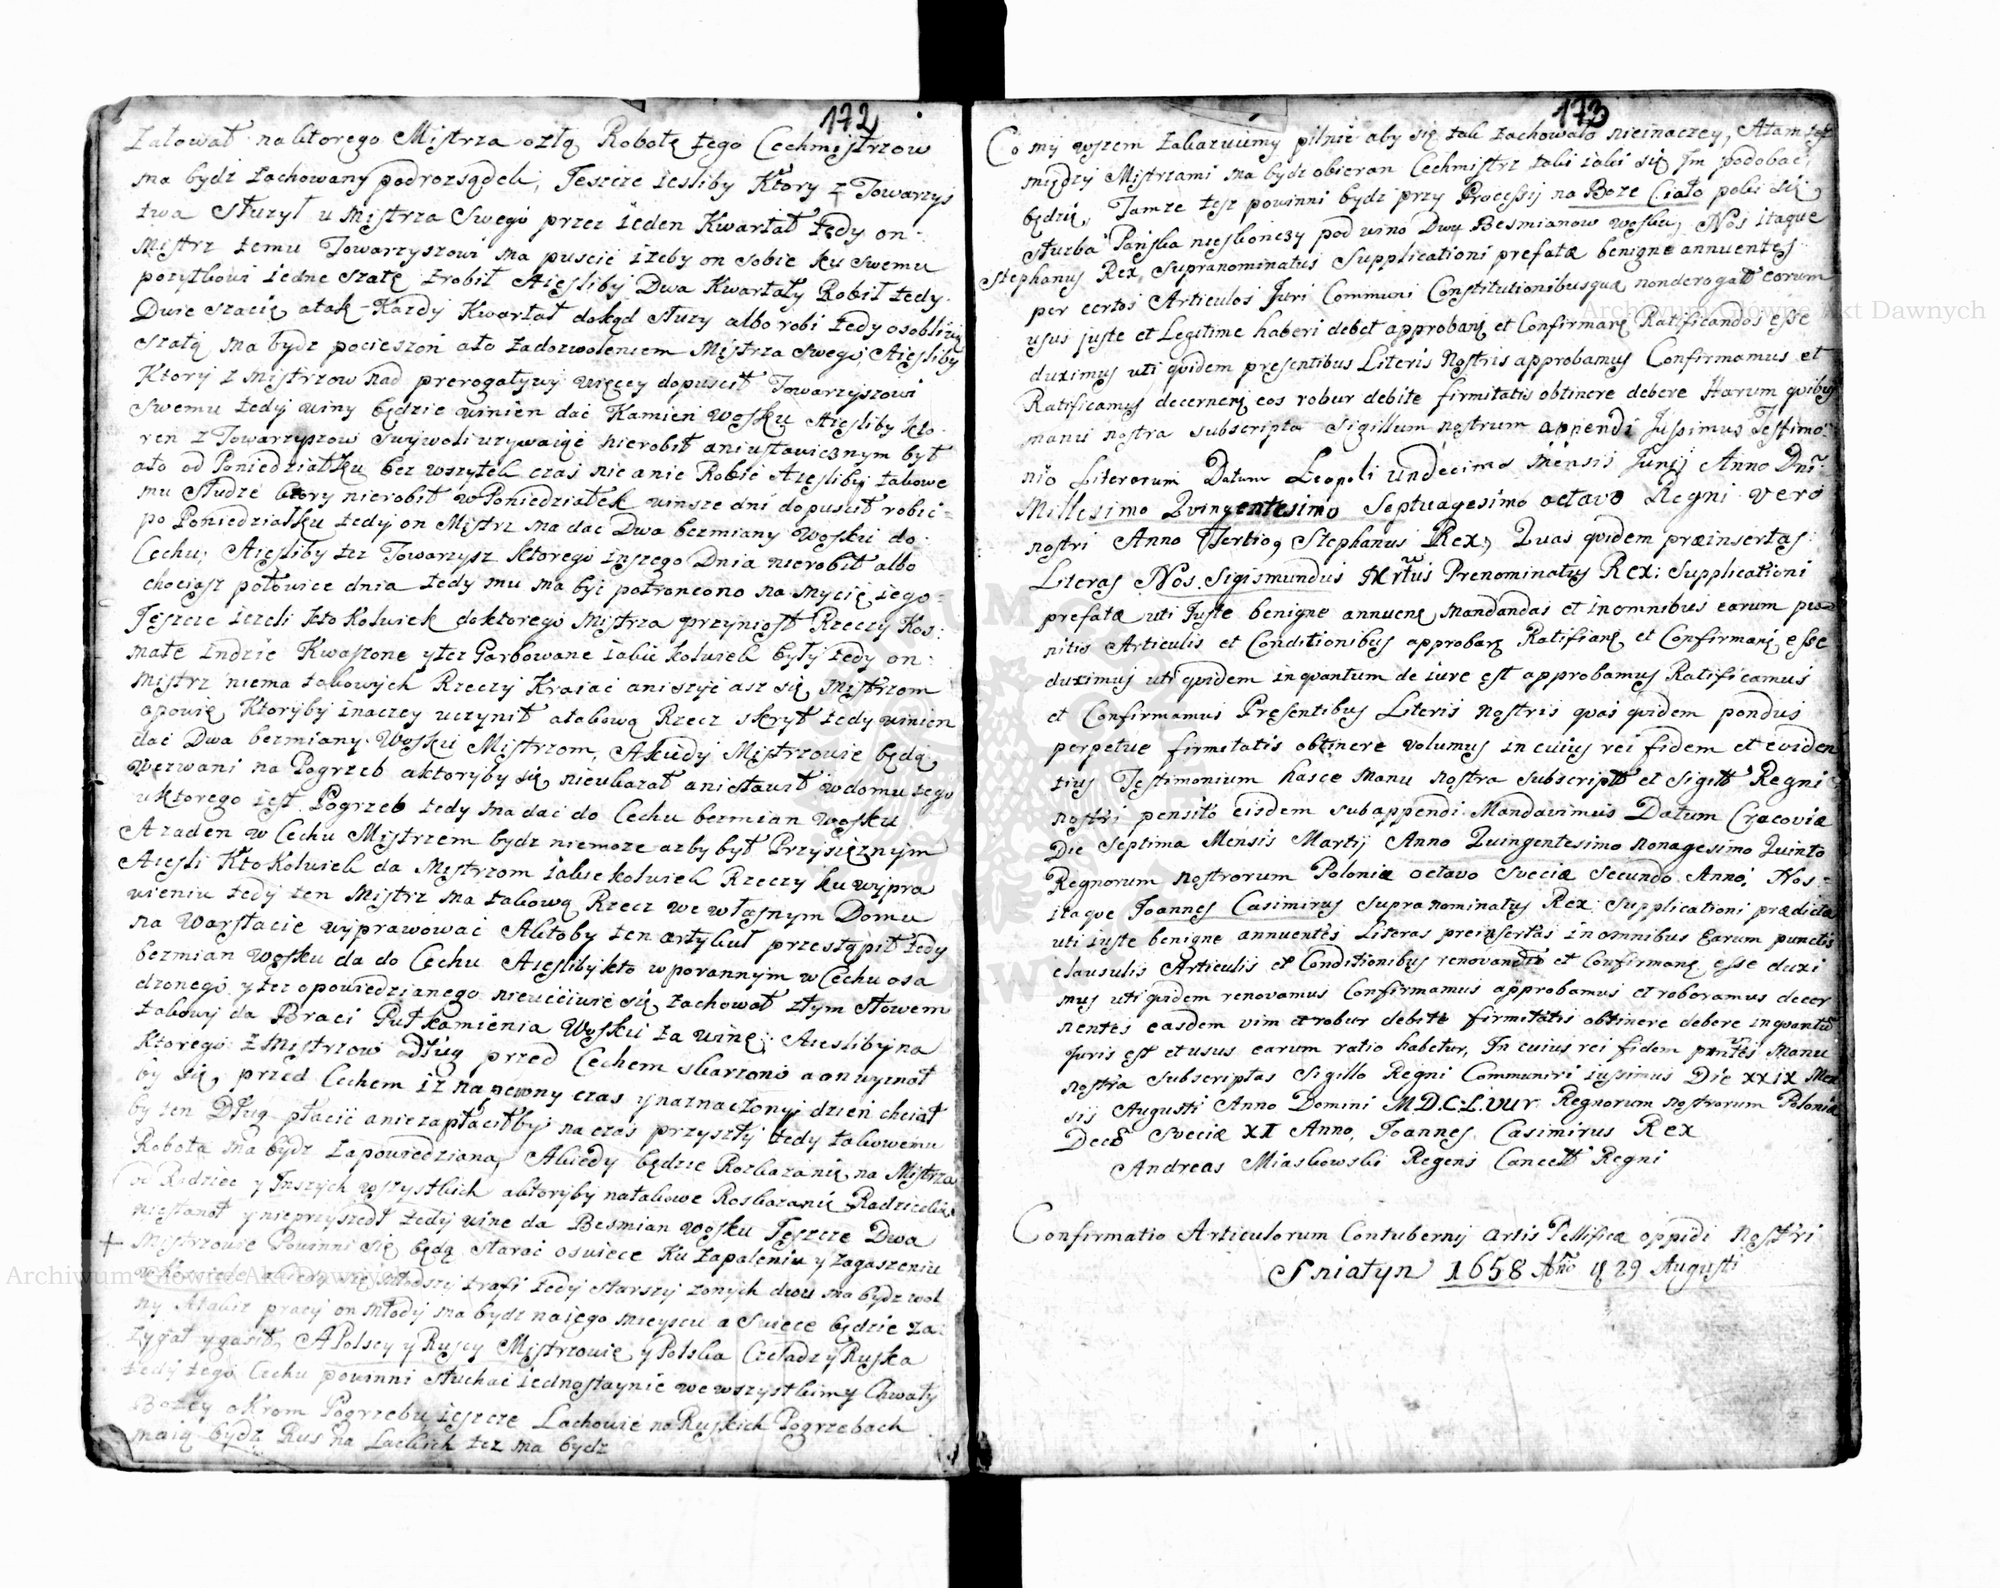 172
żałował na ktorego Mistrza ozłą Robotę tego Cechmistrzow
ma bydz zachowany podrozsądek, Jeszcze iesliby Ktory z Towarzys
twa słuzył u Mistrza Swego przez ieden Kwartał tedy on
Mistrz temu Towarzyszowi ma puscic izeby on sobie ku swemu
pozytkowi iedne szatę zrobił Aiesliby Dwa Kwartały Robił tedy
Dwie szacię atak Kazdy Kwartał dokąd słuzy albo robi tedy osobliwą
szatą ma bydz pocieszon ato zadozwoleniem Mistrza swego, Aiesliby
Ktory z Mistrzow nad prerogatywy więcey dopuscił Towarzyszowi
swemu tedy winy będzie winien dac Kamien Wosku Aiesliby kto
ren z Towarzyszow swywoli uzywaiąc nierobił ani ustawicznym był
ato od Poniedziałku bez wszytek czas nic anie Robić Aiesliby takowe
mu słudze ktory nierobił w Poniedziałek winsze dni dopuscił robić
po Poniedziałku tedy on Mistrz ma dac Dwa bezmiany Wosku do
Cechu, Aiesliby tez Towarzysz ktorego inszego Dnia nierobił albo
chociasz połowice dnia tedy mu ma byc potrącono na mycię iego
Jeszcze iezeli kto Kolwiek do ktorego Mistrza przyniosł Rzeczy Kos
mate indzie Kwaszone y tez Garbowane iakie kolwiek były tedy on
Mistrz niema takowych Rzeczy Kraiac ani szyc asz się Mistrzom
apowię Ktoryby inaczey uczynił atakową Rzecz skrył tedy winien
dać Dwa bezmiany Wosku Mistrzom, Akiedy Mistrzowie będą
wezwani na Pogrzeb aktoryby się nieukazał ani stawił w domu tego
u ktorego iest Pogrzeb tedy ma dać do Cechu bezmian wosku
Azaden w Cechu Mistrzem bydz niemoze azby był Przysięznym
Aiesli Kto Kolwiek da Mistrzom iakie kolwiek Rzeczy ku wypra
wieniu tedy ten Mistrz ma takową Rzecz we własnym Domu
na Warstacie wyprawować Aktoby ten artykuł przestąpił tedy
bezmian Wosku da do Cechu Aiesliby kto w porannym w Cechu osa
dzonego y tez opowiedzianego nieucciwie się zachował złym słowem
takowy da Braci Puł kamienia Wosku za winę, Aiesliby na
Ktorego z Mistrzow Dług przed Cechem skarzono a on uznał
by się, przed Cechem iz na pewny czas y naznaczony dzien chciał
by ten Dług płacić aniezapłaciłby na czas przyszły tedy takowemu
Robota ma bydz zapowiedziana, Akiedy będzie Rozkazanie na Mistrza
od Radziec y Inszych wszystkich aktoryby natakowe Roskazanie Radzieckie
niestanoł y nieprzyszedł tedy wine da Besmian wosku Jeszcze Dwa
+ Mistrzowie Powinni się będą starac oswiece Ku zapaleniu y zagaszeniu
młodszy trafi tedy starszy zonych dwu ma bydz wol
ny Atakiz pracy on młody ma bydz naiego mieyscu a swiece będzie za
zygał y gasił, A Polscy y Ruscy Mistrzowie y Polska Czeladz y Ruska
tedy tego Cechu powinni słuchac iednostaynie we wszystkimy Chwały
Bozey okrom Pogrzebu ieszcze Lachowie na Ruskich Pogrzebach
maią bydz Rus na Lackich tez ma bydz
173
Co my wszem zakazuiemy pilnie aby się tak zachowało nieinaczey, Atam tesz
między Mistrzami ma bydz obieran Cechmistrz taki iaki się Im podobac,
będzie, Tamze tesz powinni bydz przy Processij na Boze Ciało poki się
słuzba Pańska nieskonczy pod winą Dwu Besmianow wosku, Nos itaque
Stephanus Rex, Supranominatus Supplicationi prefatæ benigne annuentes
per certos Articulos Juri Communi Constitutionibusque nonderogatt eorum
usus juste et Legitime haberi debet approbans et Confirmans Ratificandos esse
duximus uti quidem presentibus Literis Nostris approbamus Confirmamus et
Ratificamus decernens eos robur debite firmitatis obtinere debere Harum quibus
manu nostra subscripta Sigillum nostrum appendi Jussimus Testimo
nio Literarum Datum Leopoli undecima Mensis Junij Anno Dni
Millesimo Quingentesimo Septuagesimo octavo Regni vero
nostri Anno Tertio, Stephanus Rex, Quas quidem præinsertas
Literas Nos Sigismundus Trtius Prenominatus Rex: Supplicationi
prefatæ uti Juste benigne annuens Mandandas et in omnibus earum pu
nitis Articulis et Conditionibus approbans Ratifians et Confirmans esse
duximus uti quidem inquantum de iure est approbamus Ratificamus
et Confirmamus Presentibus Literis Nostris quas quidem pondus
perpetue firmitatis obtinere volumus in cuius rei fidem et eviden
tius Testimonium hasce Manu nostra subscriptt et Sigill Regni
nostri pensilo eisdem subappendi Mandavimus Datum Cracoviæ
Die Septima Mensis Martij Anno Quingentesimo nonagesimo Quinto
Regnorum nostrorum Poloniæ octavo Sveciæ Secundo Anno, Nos
itaque Joannes Casimirus Supranominatus Rex Supplicationi prædictæ
uti iuste benigne annuentes Literas preinsertas in omnibus Earum punctis
clausulis Articulis et Conditionibus renovandas et Confirmans esse duxi
mus uti quidem renovamus Confirmamus approbamus et roboramus decer
nentes easdem vim et robur debite firmitatis obtinere debere inquantu
Juris est et usus earum ratio habetur, In cuius rei fidem pntes Manu
nostra Subscriptas Sigillo Regni Communiri iussimus Die XXIX Men
sis Augusti Anno Domini M.D.C.L.VIII Regnorum nostrorum Poloniæ
Dec Sveciæ XI Anno, Joannes Casimirus Rex
Andreas Miaskowski Regens Cancell Regni
Confirmatio Articulorum Contubernij artis Pellificæ oppidi Nostri
Sniatyn 1658 Ano 29 Augusti
Archiwum Główne Akt Dawnych
Archiwum Główne Akt Dawnych